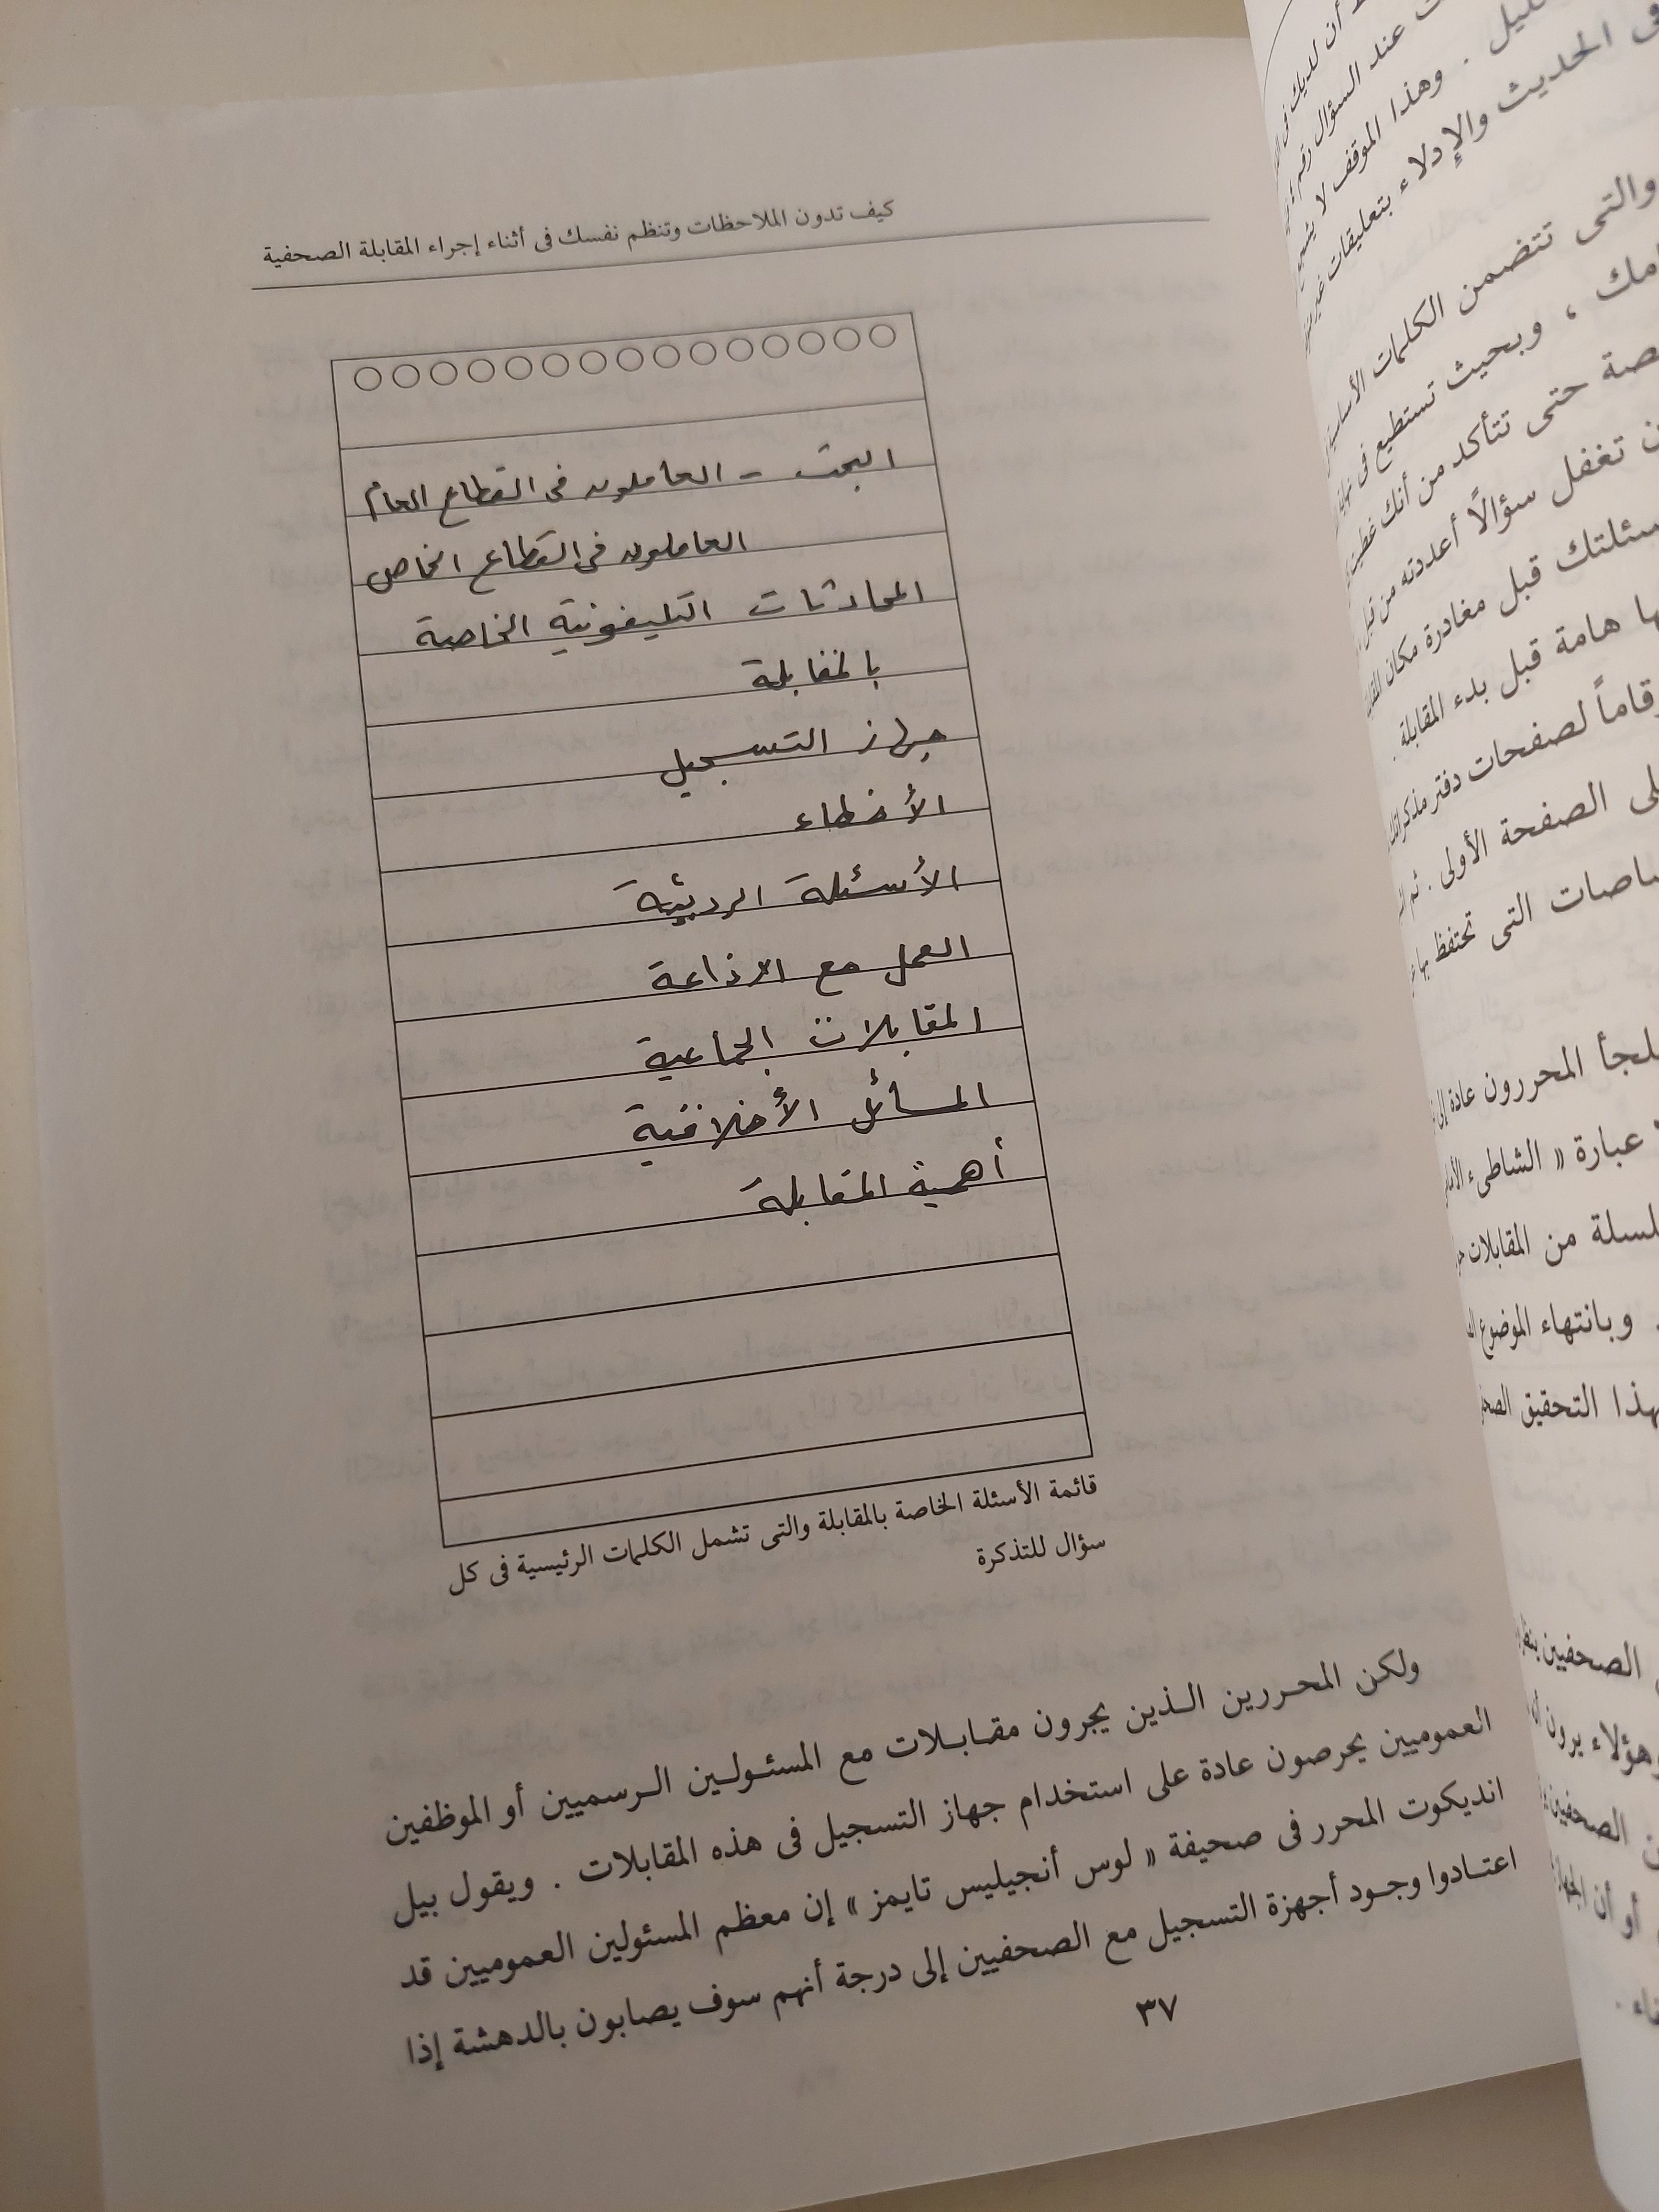 كيف تدون الملاحظات وتنظم نفسك فى أثناء إجراء المقابلة الصحفية
البحث - العاملون فى القطاع العام
العاملون فى القطاع الخاص
المحادثات التليفونية الخاصة
بالمقابلة
جهاز التسجيل
الأخطاء
الأسئلة الرديئة
العمل مع الإذاعة
المقابلات الجماعية
المسائل الأخلاقية
أهمية المقابلة
قائمة الأسئلة الخاصة بالمقابلة والتى تشمل الكلمات الرئيسية فى كل
سؤال للتذكرة
ولكن المحررين الذين يجرون مقابلات مع المسئولين الرسميين أو الموظفين
العموميين يحرصون عادة على استخدام جهاز التسجيل فى هذه المقابلات . ويقول بيل
انديكوت المحرر فى صحيفة « لوس أنجيليس تايمز » إن معظم المسئولين العموميين قد
اعتادوا وجود أجهزة التسجيل مع الصحفيين إلى درجة أنهم سوف يصابون بالدهشة إذا
٣٧
أن لديك فى
عند السؤال رقم
وهذا الموقف لا
فى الحديث والإدلاء بتعليقات غير
والتى تتضمن الكلمات الأساسية
، وبحيث تستطيع فى
حتى تتأكد من أنك غطيت
تغفل سؤالاً أعددته من قبل
قبل مغادرة مكان
هامة قبل بدء المقابلة .
لصفحات دفتر مذكراتك
الصفحة الأولى . ثم
التى تحتفظ بها
المحررون عادة إلى
عبارة « الشاطىء
من المقابلات
وبانتهاء الموضوع
التحقيق
الصحفيين
وهؤلاء يرون
الصحفيين
أو أن